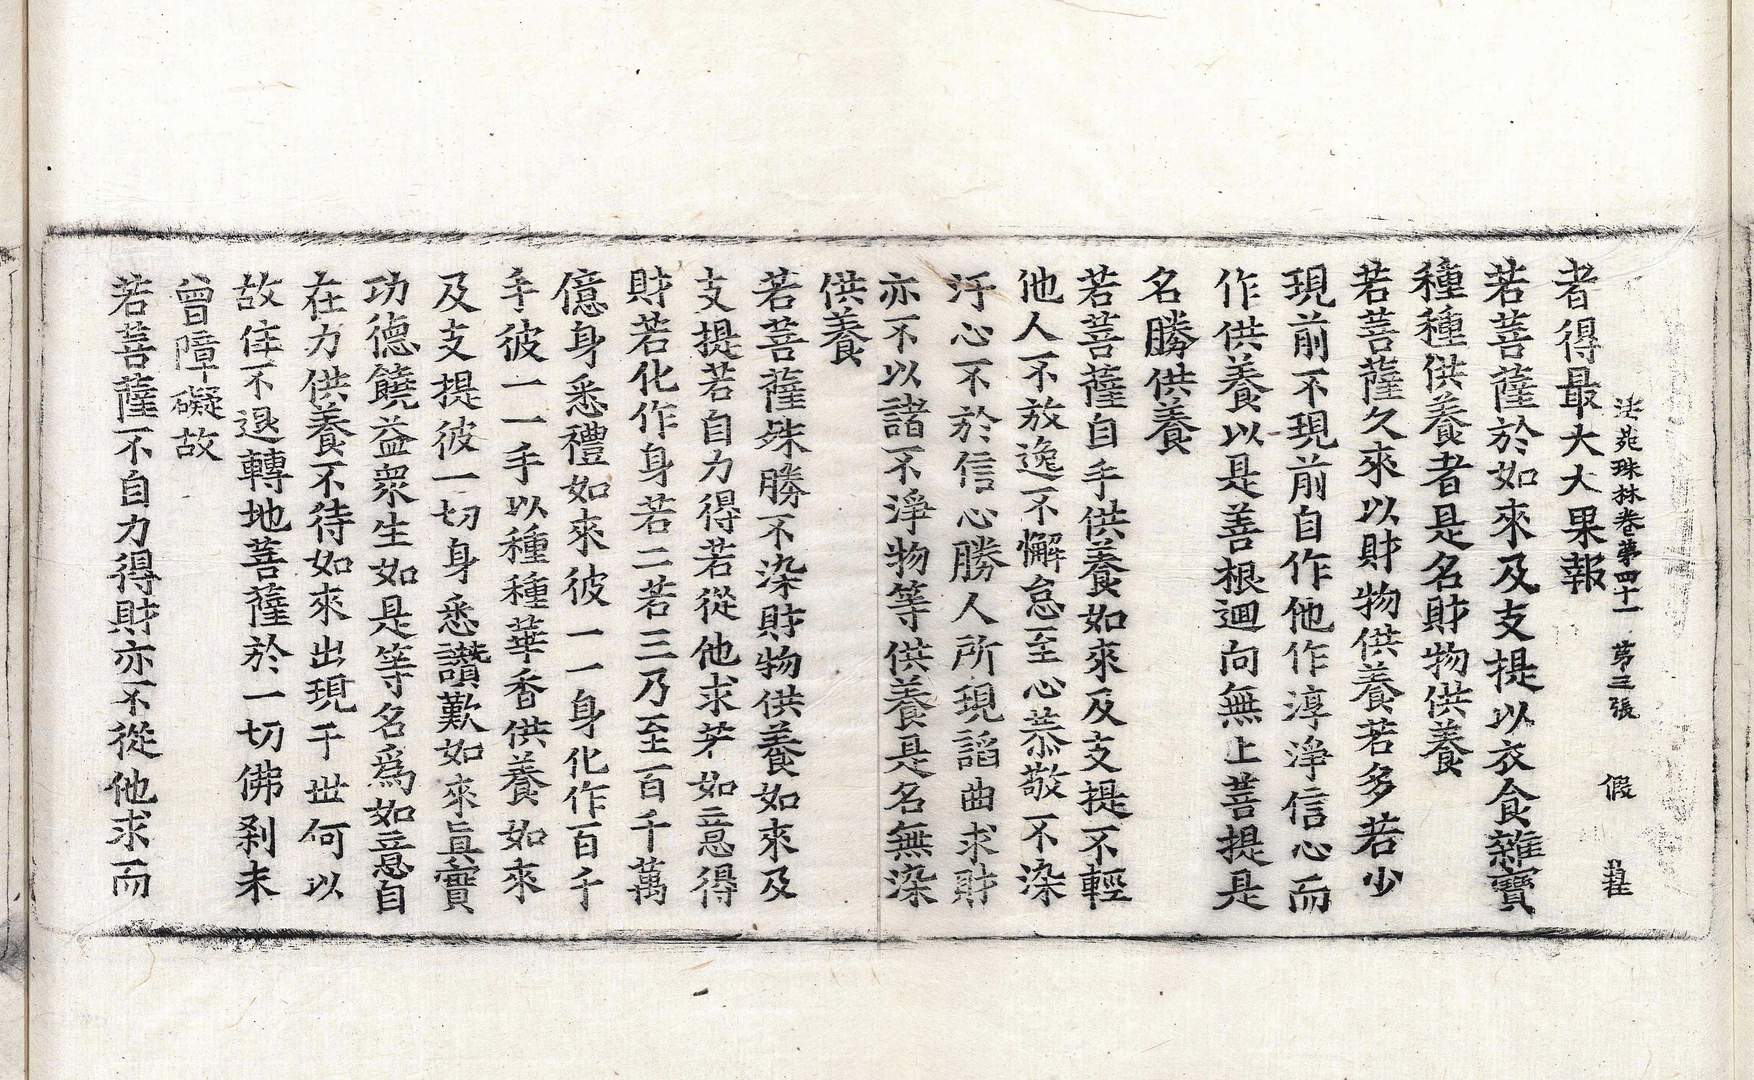 法苑珠林卷第四十一 第三張 假
者得最大大果報
若菩薩於如來及支提以衣食雜寶
種種供養者是名財物供養
若菩薩久來以財物供養若多若少
現前不現前自作他作淳淨信心而
作供養以是善根迴向無上菩提是
名勝供養
若菩薩自手供養如來及支提不輕
他人不放逸不懈怠至心恭敬不染
汙心不於信心勝人所現諂曲求財
亦不以諸不淨物等供養是名無染
供養
若菩薩殊勝不染財物供養如來及
支提若自力得若從他求若如意得
財若化作身若二若三乃至百千萬
億身悉禮如來彼一一身化作百千
手彼一一手以種種華香供養如來
及支提彼一切身悉讚歎如來眞實
功德饒益衆生如是等名爲如意自
在力供養不待如來出現于世何以
故住不退轉地菩薩於一切佛剎未
曾障礙故
若菩薩不自力得財亦不從他求而